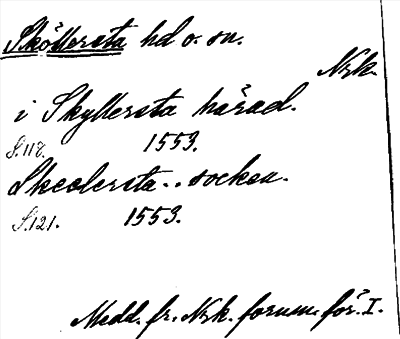 Sköllersta hd o. sn.
Nrk.
i Skyllersta härad.
S.118. 1553.
Skeolersta .. socken.
S.121. 1553.
Medd. fr. Nrk. fornm. för. I.